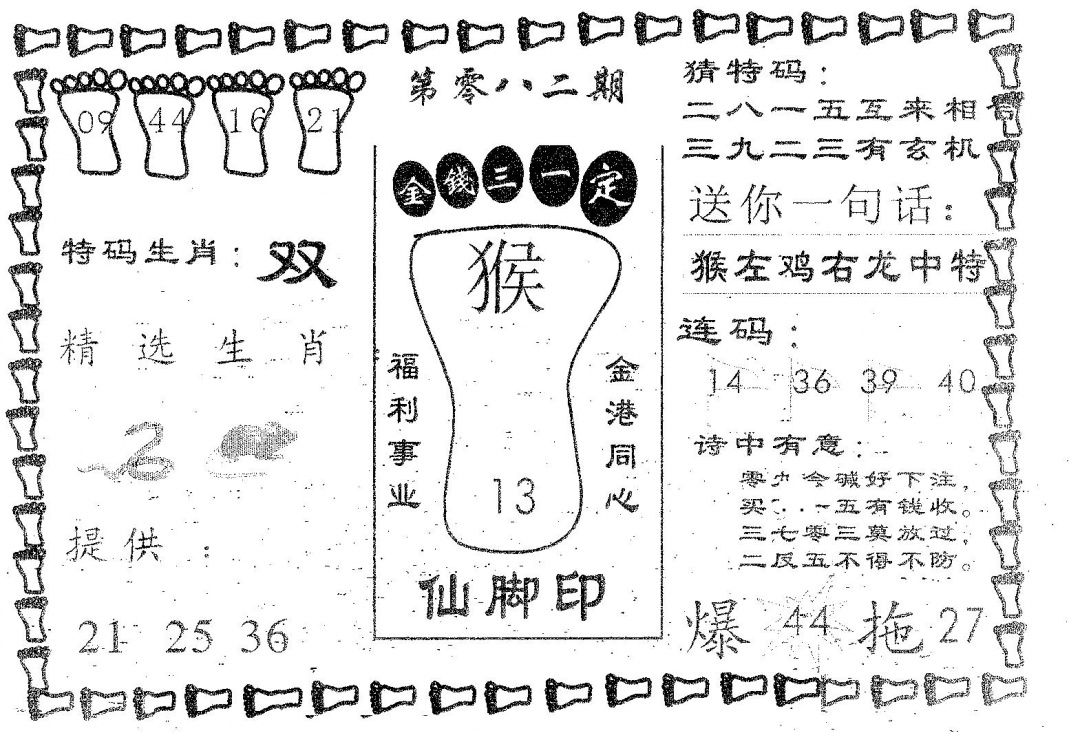 09 44 16 21
特码生肖：双
精选生肖
提供：
21 25 36
第零八二期
金錢三一定
猴
福利事业
金港同心
13
仙脚印
猜特码：
二八一五互来相
三九二三有玄机
送你一句话：
猴左鸡右龙中特
连码：
14 36 39 40
诗中有意：
零九会碱好下注，
买 一五有钱收。
三七零三莫放过，
二反五不得不防。
爆 44 拖 27